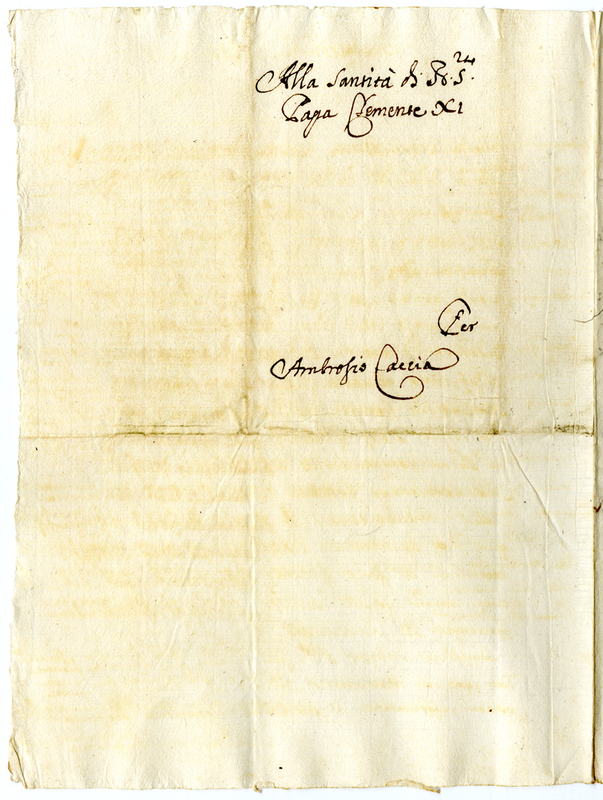 Alla Santità di N. S.
Papa Clemente XI
Per
Ambrosio Caccia